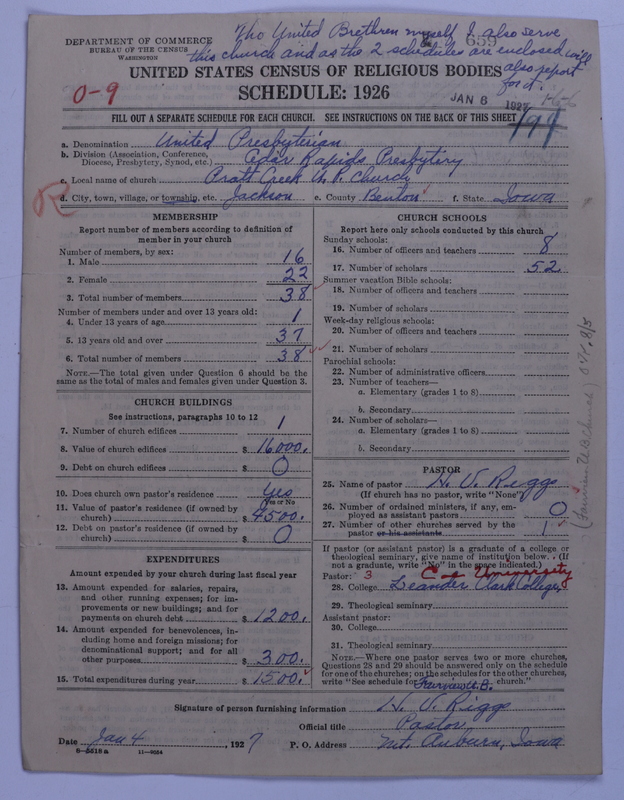 The United Brethren myself I also serve
DEPARTMENT OF COMMERCE
BUREAU OF THE CENSUS
WASHINGTON
659
this church and as the 2 schedules are enclosed will
also report
for it.
UNITED STATES CENSUS OF RELIGIOUS BODIES
0-9
SCHEDULE: 1926
JAN 8 1927
FILL OUT A SEPARATE SCHEDULE FOR EACH CHURCH. SEE INSTRUCTIONS ON THE BACK OF THIS SHEET
191
a. Denomination United Presbyterian
b. Division (Association, Conference, Diocese, Presbytery, Synod, etc.) Cedar Rapids Presbytery
c. Local name of church Pratt Creek U.P. Church
R
d. City, town, village, or township, etc. Jackson e. County Benton f. State Iowa
MEMBERSHIP
Report number of members according to definition of
member in your church
Number of members, by sex:
1. Male 16
2. Female 22
3. Total number of members 38
Number of members under and over 13 years old:
4. Under 13 years of age 1
5. 13 years old and over 37
6. Total number of members 38
NOTE.—The total given under Question 6 should be the
same as the total of males and females given under Question 3.
CHURCH BUILDINGS
See instructions, paragraphs 10 to 12
7. Number of church edifices 1
8. Value of church edifices $ 16000.
9. Debt on church edifices $ 0
10. Does church own pastor's residence Yes
Yes or No
11. Value of pastor's residence (if owned by
church) $ 4500.
12. Debt on pastor's residence (if owned by
church) $ 0
EXPENDITURES
Amount expended by your church during last fiscal year
13. Amount expended for salaries, repairs,
and other running expenses; for im-
provements or new buildings; and for
payments on church debt $ 1200.
14. Amount expended for benevolences, in-
cluding home and foreign missions; for
denominational support; and for all
other purposes $ 300.
15. Total expenditures during year $ 1500.
CHURCH SCHOOLS
Report here only schools conducted by this church
Sunday schools:
16. Number of officers and teachers 8
17. Number of scholars 52.
Summer vacation Bible schools:
18. Number of officers and teachers
19. Number of scholars
Week-day religious schools:
20. Number of officers and teachers
21. Number of scholars
Parochial schools:
22. Number of administrative officers
23. Number of teachers—
a. Elementary (grades 1 to 8)
b. Secondary
24. Number of scholars—
a. Elementary (grades 1 to 8)
b. Secondary
PASTOR
25. Name of pastor H. V. Riggs
(If church has no pastor, write "None")
26. Number of ordained ministers, if any, em-
ployed as assistant pastors 0
27. Number of other churches served by the
pastor or his assistants 1
If pastor (or assistant pastor) is a graduate of a college or
theological seminary, give name of institution below. (If
not a graduate, write "No" in the space indicated.)
Pastor: 3 Coe University
28. College Leander Clark College,
29. Theological seminary
Assistant pastor:
30. College
31. Theological seminary
NOTE.—Where one pastor serves two or more churches,
Questions 28 and 29 should be answered only on the schedule
for one of the churches; on the schedules for the other churches,
write "See schedule for Fairview U.B. church."
(Fairview U B Church)
Signature of person furnishing information H. V. Riggs
Official title Pastor
Date Jan 4, 1927 P. O. Address Mt. Auburn, Iowa
8-5518a 11-9054